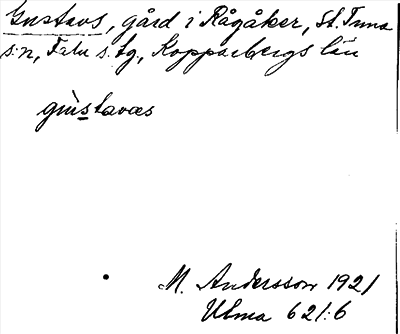 Gustavs, gård i Rågåker, St. Tuna
s:n, Falu s. lg, Kopparbergs län
gùstavas
M. Andersson 1921
Ulma 621:6